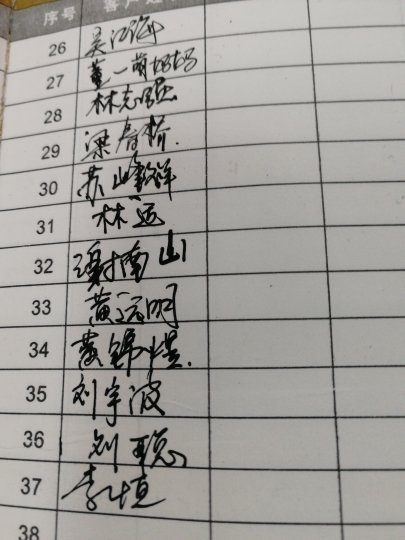 序号
26 吴江海
27 董一萌妈妈
28 林志强
29 梁春桥
30 苏山鲜祥
31 林远
32 谢南山
33 黄远明
34 黄锦煋
35 刘宇波
36 刘聪
37 李恒
38